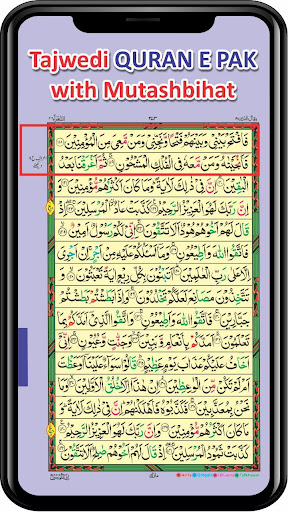 Tajwedi QURAN E PAK
with Mutashbihat
فَافْتَحْ بَيْنِيْ وَبَيْنَهُمْ فَتْحًا وَّنَجِّنِيْ وَمَنْ مَّعِيَ مِنَ الْمُؤْمِنِيْنَ
فَاَنْجَيْنٰهُ وَمَنْ مَّعَهٗ فِي الْفُلْكِ الْمَشْحُوْنِ ثُمَّ اَغْرَقْنَا بَعْدُ
الْبٰقِيْنَ اِنَّ فِيْ ذٰلِكَ لَاٰيَةً وَمَا كَانَ اَكْثَرُهُمْ مُّؤْمِنِيْنَ وَ
اِنَّ رَبَّكَ لَهُوَ الْعَزِيْزُ الرَّحِيْمُ كَذَّبَتْ عَادُ الْمُرْسَلِيْنَ اِذْ
قَالَ لَهُمْ اَخُوْهُمْ هُوْدٌ اَلَا تَتَّقُوْنَ اِنِّيْ لَكُمْ رَسُوْلٌ اَمِيْنٌ
فَاتَّقُوا اللّٰهَ وَاَطِيْعُوْنِ وَمَاۤ اَسْـَٔلُكُمْ عَلَيْهِ مِنْ اَجْرٍ اِنْ اَجْرِيَ
اِلَّا عَلٰى رَبِّ الْعٰلَمِيْنَ اَتَبْنُوْنَ بِكُلِّ رِيْعٍ اٰيَةً تَعْبَثُوْنَ وَ
تَتَّخِذُوْنَ مَصَانِعَ لَعَلَّكُمْ تَخْلُدُوْنَ وَاِذَا بَطَشْتُمْ بَطَشْتُمْ
جَبَّارِيْنَ فَاتَّقُوا اللّٰهَ وَاَطِيْعُوْنِ وَاتَّقُوا الَّذِيْۤ اَمَدَّكُمْ بِمَا
تَعْلَمُوْنَ اَمَدَّكُمْ بِاَنْعَامٍ وَّبَنِيْنَ وَجَنّٰتٍ وَّعُيُوْنٍ اِنِّيْۤ
اَخَافُ عَلَيْكُمْ عَذَابَ يَوْمٍ عَظِيْمٍ قَالُوْا سَوَآءٌ عَلَيْنَاۤ اَوَعَظْتَ
اَمْ لَمْ تَكُنْ مِّنَ الْوٰعِظِيْنَ اِنْ هٰذَاۤ اِلَّا خُلُقُ الْاَوَّلِيْنَ وَمَا
نَحْنُ بِمُعَذَّبِيْنَ فَكَذَّبُوْهُ فَاَهْلَكْنٰهُمْ اِنَّ فِيْ ذٰلِكَ لَاٰيَةً وَ
مَا كَانَ اَكْثَرُهُمْ مُّؤْمِنِيْنَ وَاِنَّ رَبَّكَ لَهُوَ الْعَزِيْزُ الرَّحِيْمُ
كَذَّبَتْ ثَمُوْدُ الْمُرْسَلِيْنَ اِذْ قَالَ لَهُمْ اَخُوْهُمْ صٰلِحٌ اَلَا تَتَّقُوْنَ